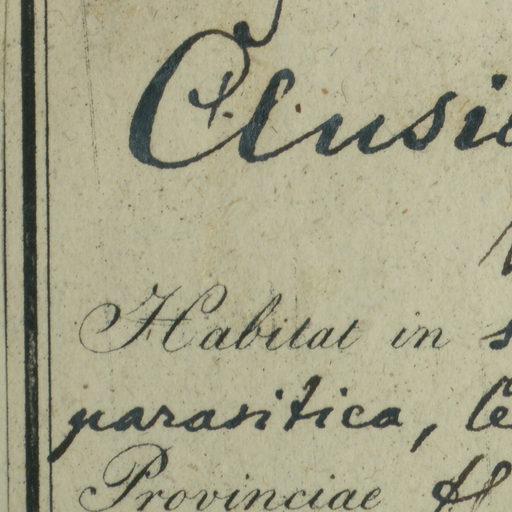 Clusi
Habitat in
parasitica,
Provinciae